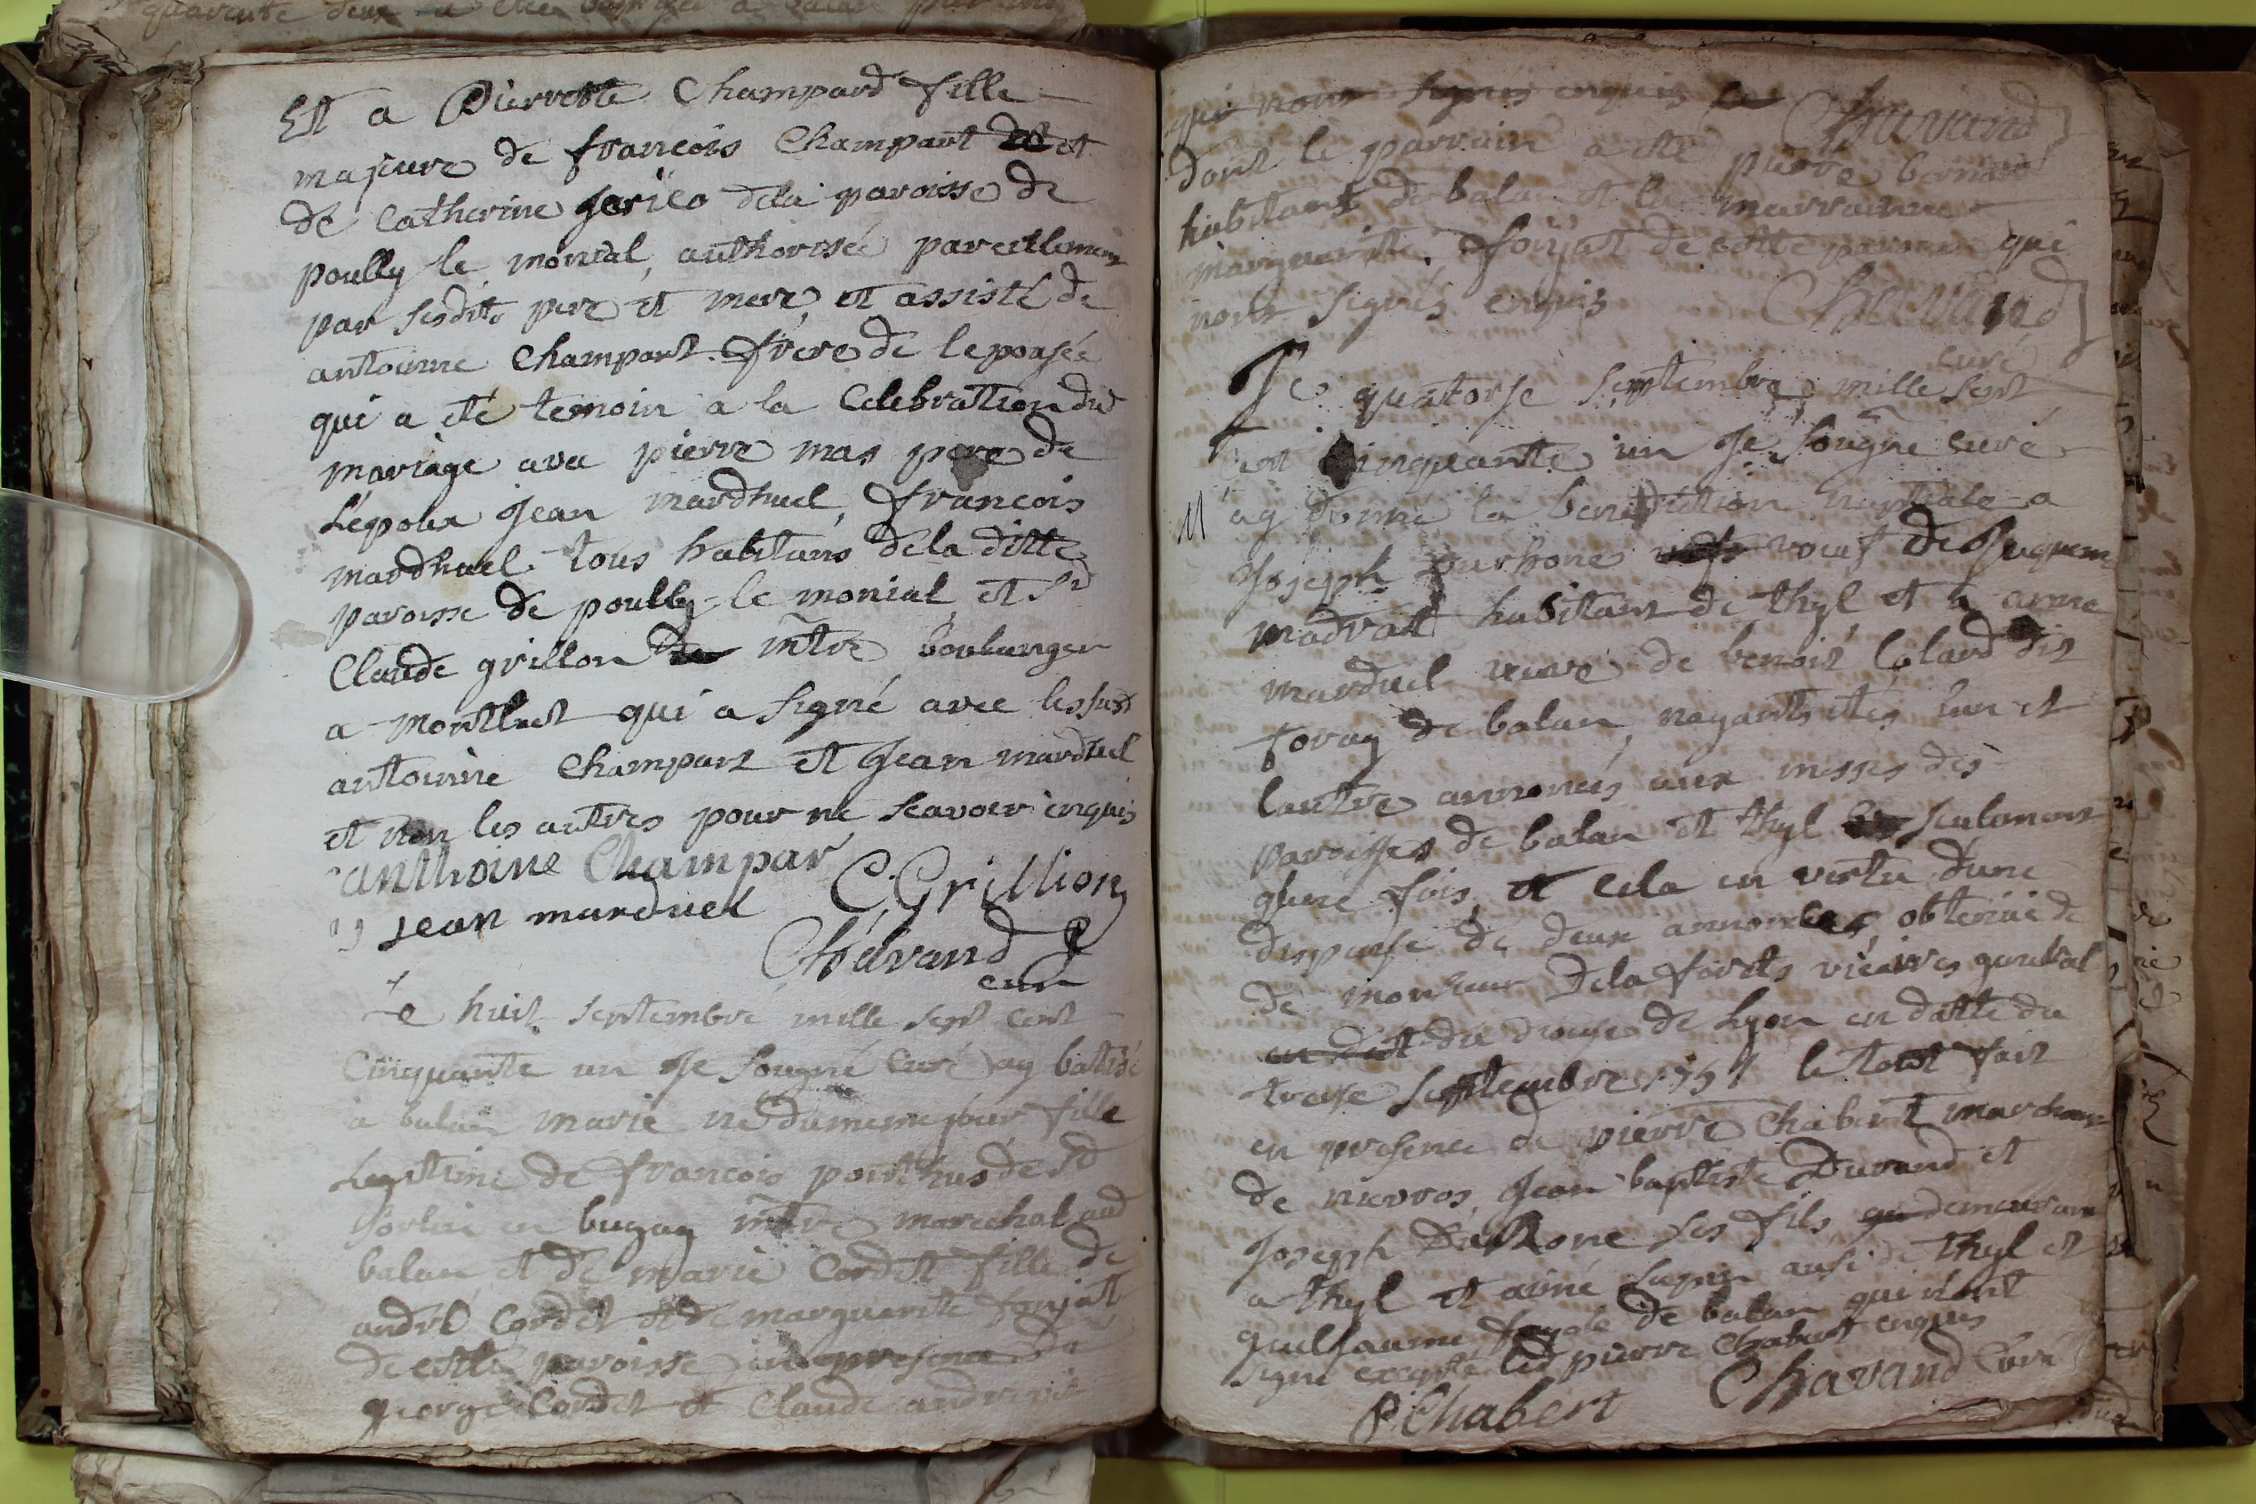 Et a Pierrette Champard fille
majeure de francois Champart et
de Catherine jerico dela paroisse de
poully le monial, authorisée pareillement
par sesdits pere et mere, et assisté de
antoinne Champart frere de lepousée
qui a eté temoin a la Celebration du
mariage avec pierre mas pere de
l'époux jean mardhuel, francois
mardhuel tous habitans dela ditte
paroisse de poully le monial et Sr
Claude grillon mtre boulanger
a montluet qui a signé avec les susd
antoinne Champart et jean mardhuel
et non les autres pour ne scavoir enquis
anthoine Champar C. Grillion
jean marduel
Chavand
curé
Le huit septembre mille sept cent
cinquante un je sousigné curé ay batisé
a balan marie né du meme jour fille
legitime de francois ponthus de St
sorlin en bugay mtre marechal aud
balan et de marie Cordet fille de
andre Cordet et de marguerite fonjat
de cette paroisse en presence de
george Cordet et Claude
qui nont signés enquis Chavand
dont le parrain a eté pierre bernard
habitant de balan et la marrainne
marguerite fonjat de cette paroisse qui
nont signés enquis Chavand
curé
Le quatorse septembre mille sept
cent cinquante un je sousigné curé
ay donné la benediction nuptiale a
joseph veuf de
habitant de thyl et a anne
marduel veuve de benoit Colard dit
foray de balan, nayants etés l'un et
lautre annoncés aux messes des
paroisses de balan et thyl seulement
qune fois, et cela en vertu d'une
dispense de deux annonces obtenüe de
de monsieur Dela forets vicaires general
du diocese de Lyon en datte du
treise septembre 1751 le tout fait
en presence de pierre Chabert marchand
de nievros, jean baptiste Durand et
joseph ses fils demeurant
a thyl et aimé aussi de thyl et
guilhaume fayole de balan qui n'ont
signé excepté led pierre Chabert enquis
P. Chabert Chavand Curé